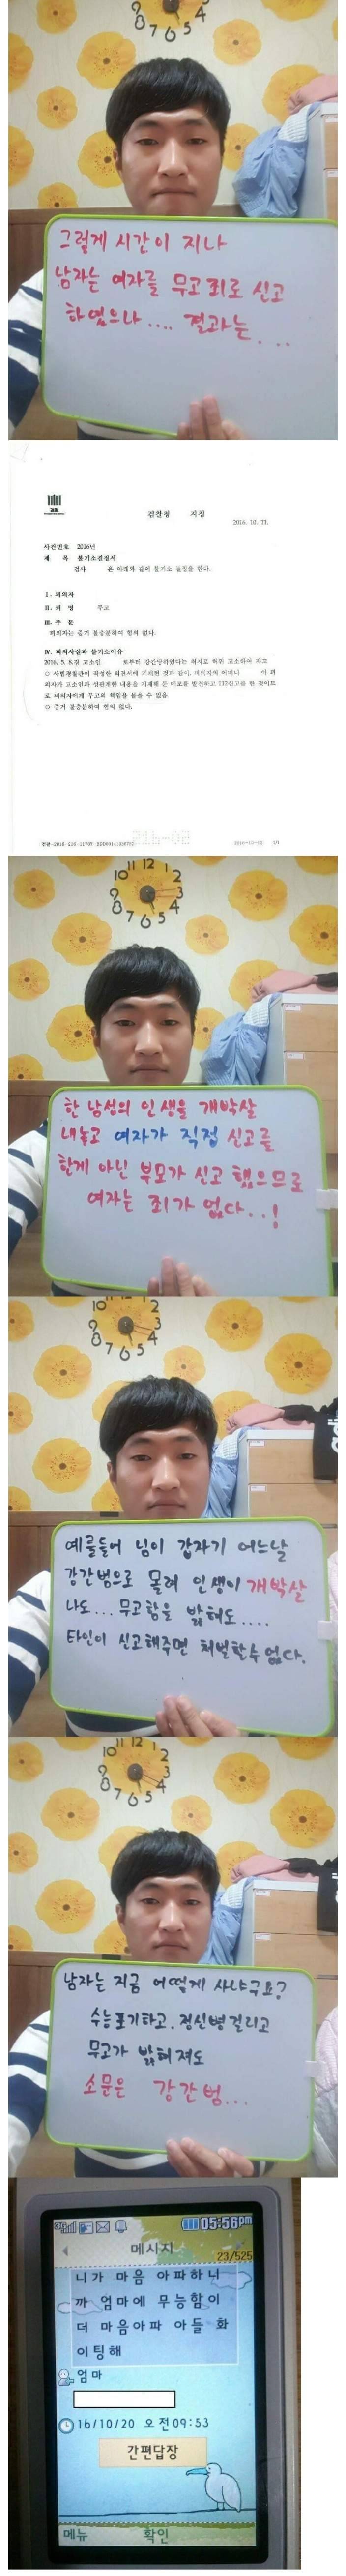 그렇게 시간이 지나
남자는 여자를 무고죄로 신고
하였으나.... 결과는...
검찰청 지청
2016. 10. 11.
사건번호 2016년
제 목 불기소결정서
검사 은 아래와 같이 불기소 결정을 한다.
I. 피의자
II. 죄 명 무고
III. 주 문
피의자는 증거 불충분하여 혐의 없다.
IV. 피의사실과 불기소이유
2016. 5. 8.경 고소인 로부터 강간당하였다는 취지로 허위 고소하여 무고
○ 사법경찰관이 작성한 의견서에 기재된 것과 같이, 피의자의 어머니 이 피
의자가 고소인과 성관계한 내용을 기재해 둔 메모를 발견하고 112신고를 한 것이므
로 피의자에게 무고의 책임을 물을 수 없음
○ 증거 불충분하여 혐의 없다.
1/1
11 12 1
10 2
3
9
8 4
7 6 5
한 남성의 인생을 개박살
내놓고 여자가 직접 신고를
한게 아닌 부모가 신고 했으므로
여자는 죄가 없다..!
예를들어 님이 갑자기 어느날
강간범으로 몰려 인생이 개박살
나도... 무고함을 밝혀도....
타인이 신고해주면 처벌할수 없다.
남자는 지금 어떻게 사냐구요?
수능포기하고, 정신병걸리고
무고가 밝혀져도
소문은 강간범...
3G 05:56pm
메시지
23/525
니가 마음 아파하니
까 엄마에 무능함이
더 마음아파 아들 화
이팅해
엄마
16/10/20 오전09:53
간편답장
메뉴 확인